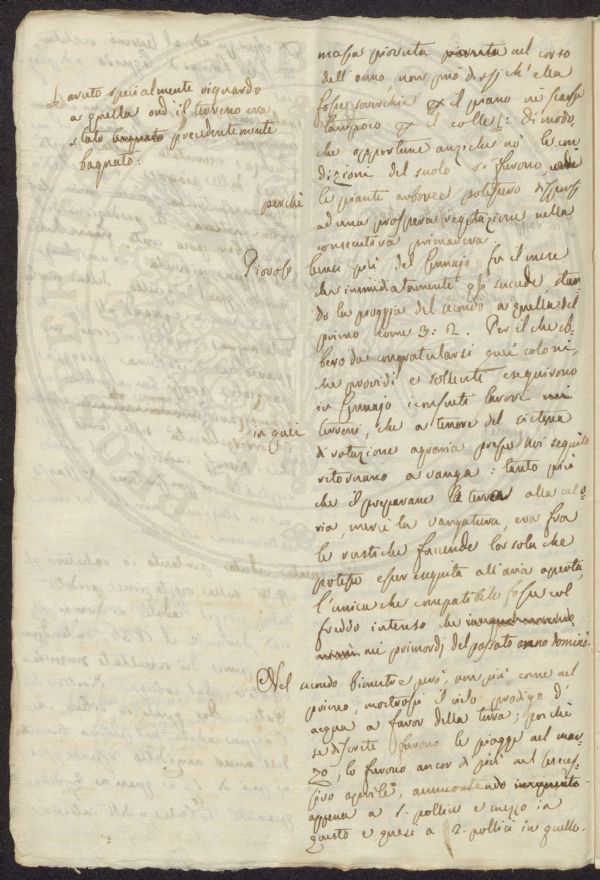 avuto specialmente riguardo
a quella ond' il terreno era
stato bagnato precedentemente
bagnato:
perchè
Piovoso
in quei
massa piovuta piovuta nel corso
dell' anno, non può dirsi ch' ella
fosse soverchia il piano nè scarsa
tampoco il colle: di modo
che opportune anzichè nò le con
dizioni del suolo si furono,
le piante arboree potessero disporsi
ad una prospera vegetazione nella
consecutiva primavera.
bensì più del Gennajo fu il mese
che immediatamente gli succede stan
do la pioggia del secondo a quella del
primo come 3: 2. Per il che eb
bero da congratularsi quei coloni,
che providi e solerti eseguirono
in Gennajo i consueti lavori
terreni, che a tenore del sistema
di rotazione agraria presso noi seguito
ritornano a vanga: tanto più
che il preparare le terre alla calo
ria, mercè la vangatura, era fra
le rustiche faccende la sola che
potesse esser eseguita all' aria aperta,
l' unica che compatibile fosse col
freddo intenso che
nei primordj del passato anno dominò.
Nel secondo bimestre però, non più come nel
primo, mostrossi il cielo prodigo d'
acqua a favor della terra; poichè
se discrete furono le piogge nel mar
zo, lo furono ancor di più nel succes
sivo aprile, ammontando
appena a 1. pollice e mezzo in
questo e quasi a 2. pollici in quello.